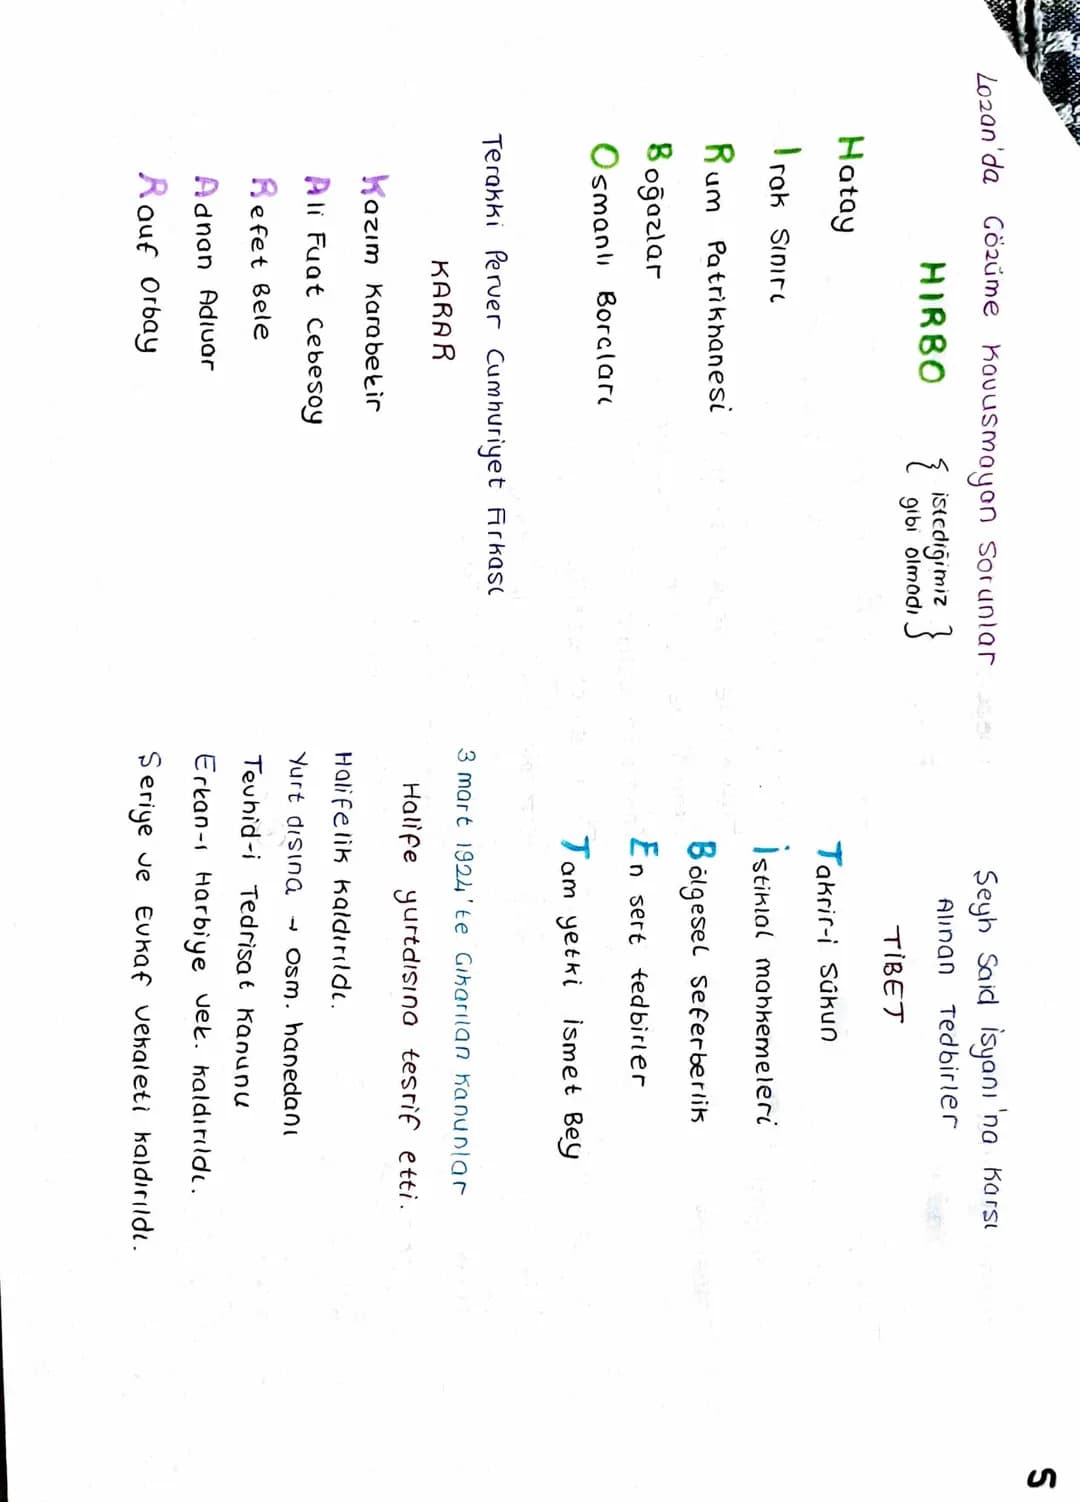 5
Lozan'da Çözüme Kavusmayan Sorunlar
HIRBO { istediğimiz
gibi olmadı }
Hatay
Irak Sınırı
Rum Patrikhanesi
Boğazlar
Osmanlı Borçları
Terakki Perver Cumhuriyet Fırkası
KARAR
Kazım Karabekir
Ali Fuat Cebesoy
Refet Bele
Adnan Adıvar
Rauf Orbay
Şeyh Said İsyanı'na Karsı
Alınan Tedbirler
TİBET
Takrir-i Sükun
İstiklal mahkemeleri
Bölgesel seferberlik
En sert tedbirler
Tam yetki ismet Bey
3 mart 1924'te Çıkarılan Kanunlar
Halife yurtdısına tesrif etti.
Halifelik kaldırıldı.
Yurt dısına → Osm. hanedanı
Tevhid-i Tedrisat Kanunu
Erkan-ı Harbiye vek. kaldırıldı.
Seriye ve Evkaf vekaleti kaldırıldı.